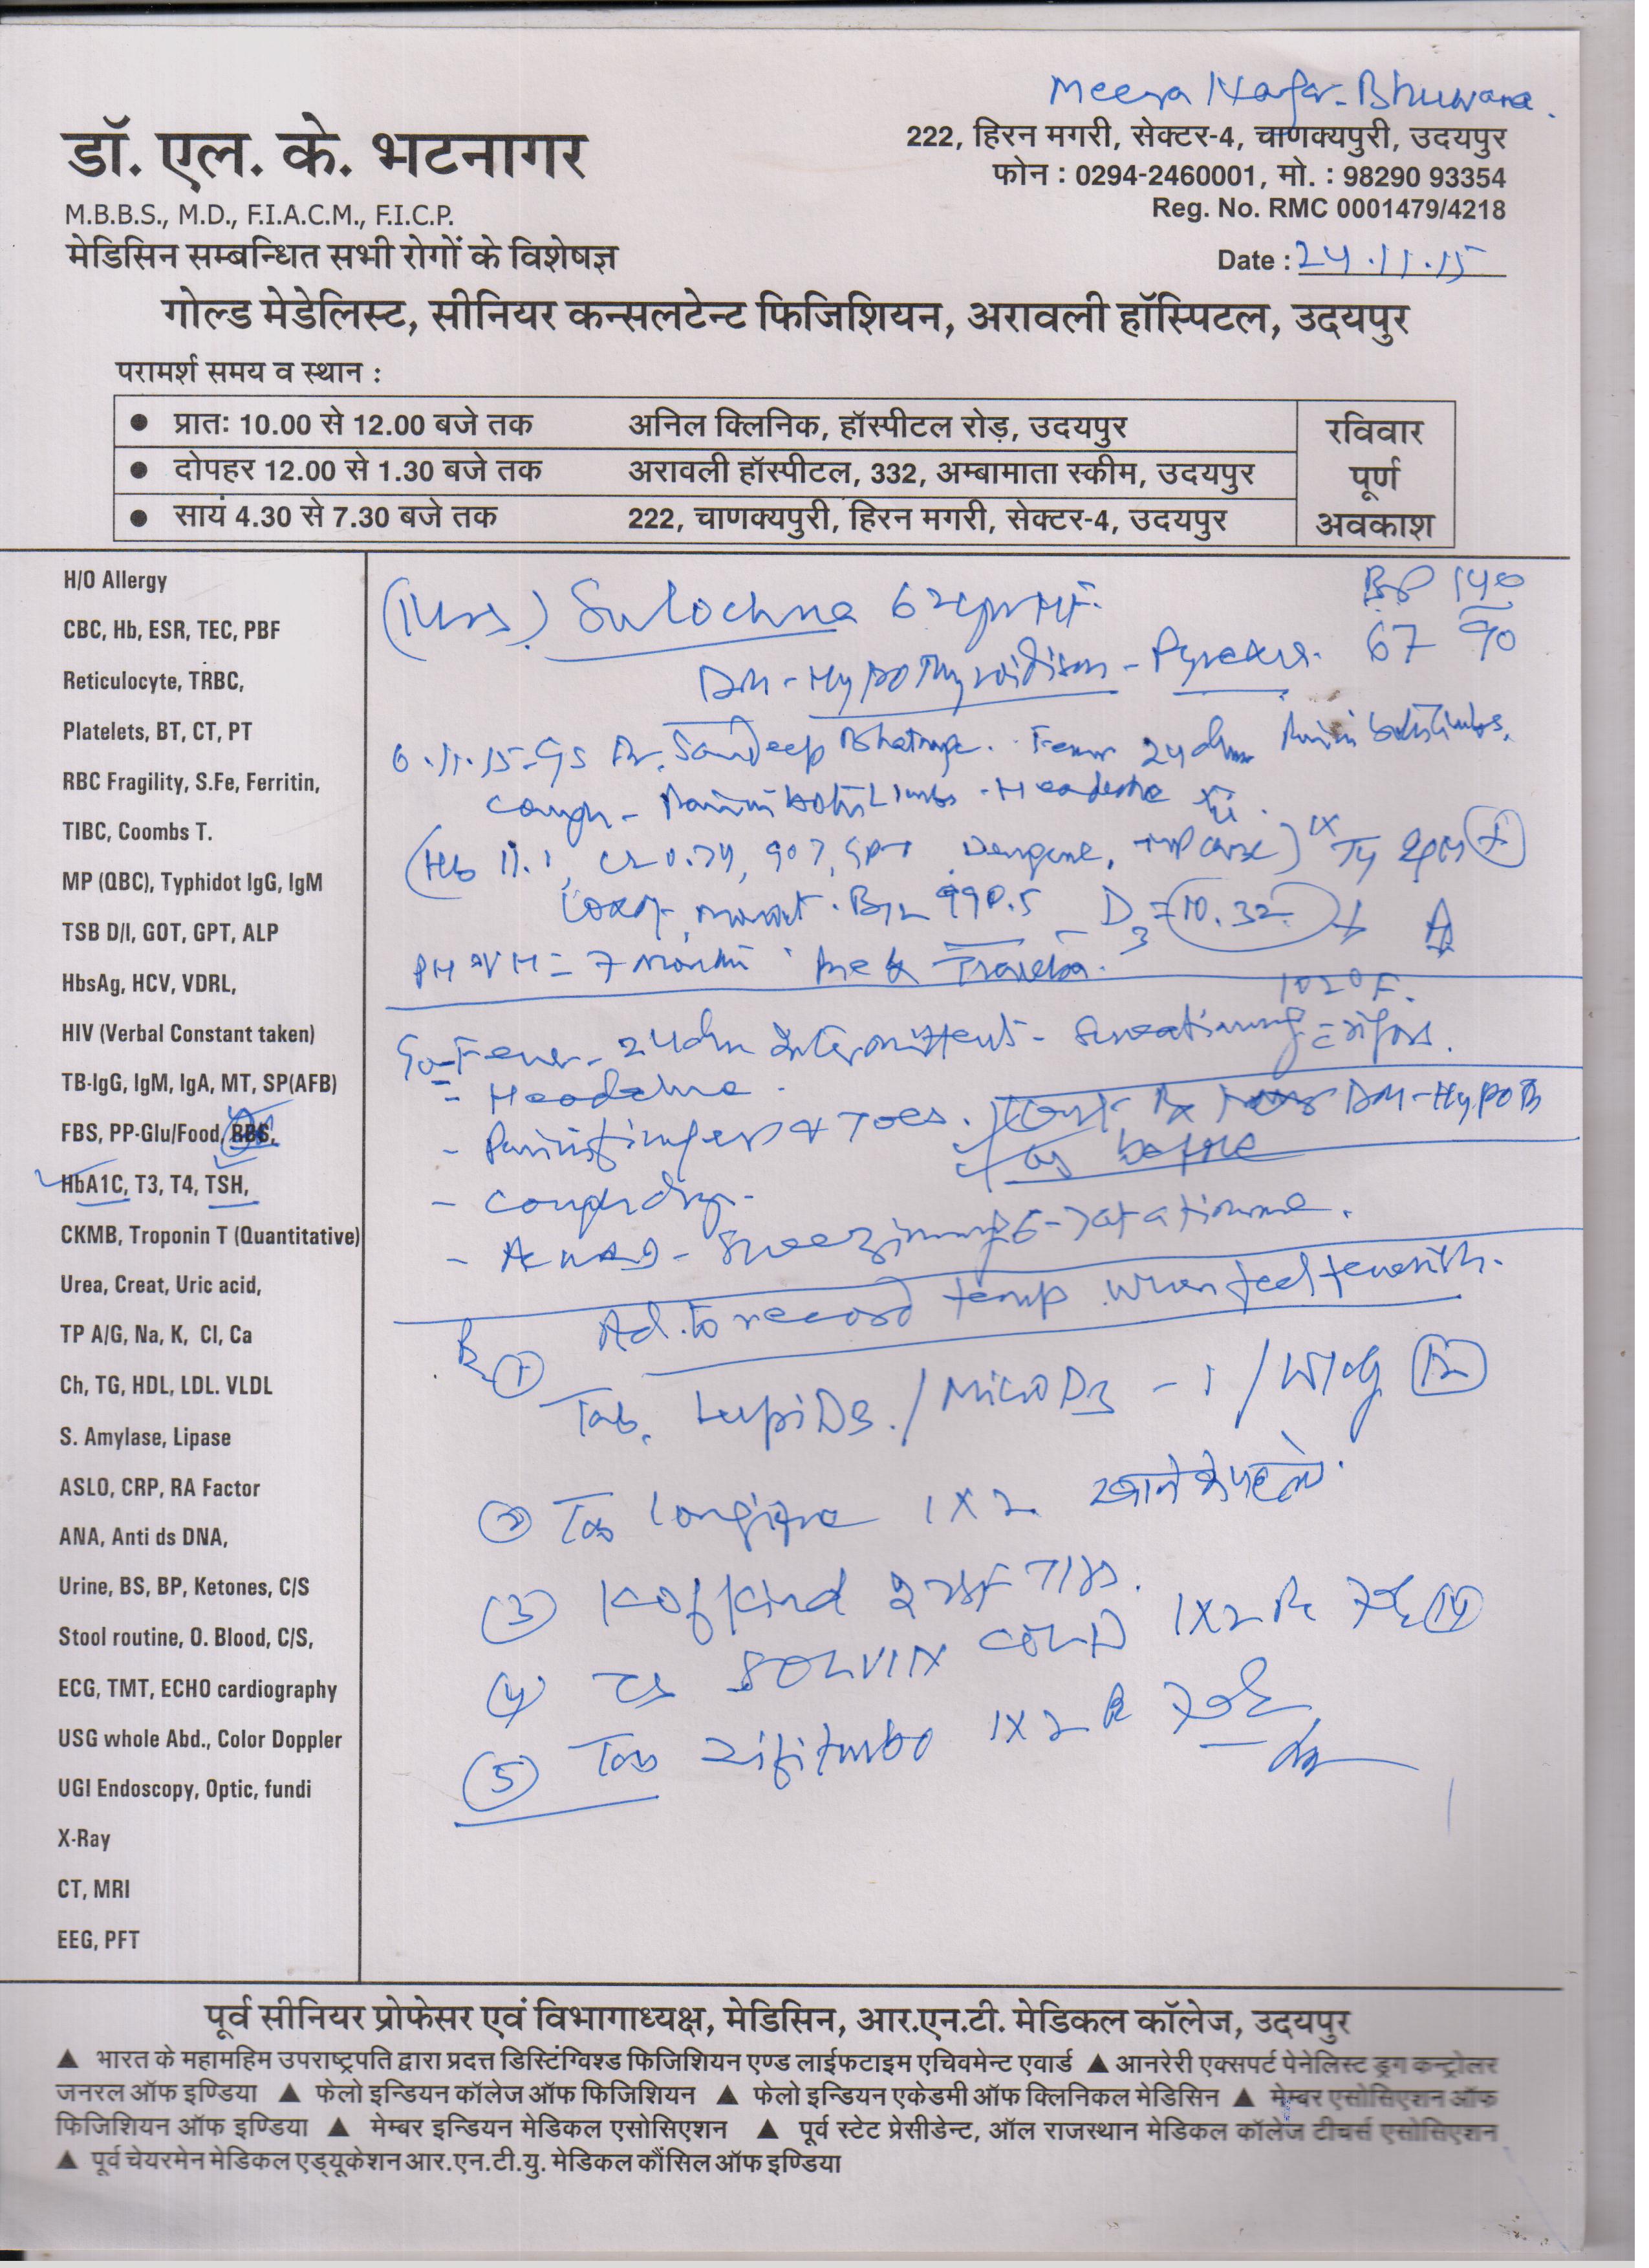 Meera Nagar-Bhuwana.
डॉ. एल. के. भटनागर
M.B.B.S., M.D., F.I.A.C.M., F.I.C.P.
मेडिसिन सम्बन्धित सभी रोगों के विशेषज्ञ
222, हिरन मगरी, सेक्टर-4, चाणक्यपुरी, उदयपुर
फोन : 0294-2460001, मो. : 98290 93354
Reg. No. RMC 0001479/4218
Date : 24.11.15
गोल्ड मेडेलिस्ट, सीनियर कन्सलटेन्ट फिजिशियन, अरावली हॉस्पिटल, उदयपुर
परामर्श समय व स्थान :
● प्रातः 10.00 से 12.00 बजे तक अनिल क्लिनिक, हॉस्पीटल रोड़, उदयपुर
● दोपहर 12.00 से 1.30 बजे तक अरावली हॉस्पीटल, 332, अम्बामाता स्कीम, उदयपुर
● सायं 4.30 से 7.30 बजे तक 222, चाणक्यपुरी, हिरन मगरी, सेक्टर-4, उदयपुर
रविवार
पूर्ण
अवकाश
H/O Allergy
CBC, Hb, ESR, TEC, PBF
Reticulocyte, TRBC,
Platelets, BT, CT, PT
RBC Fragility, S.Fe, Ferritin,
TIBC, Coombs T.
MP (QBC), Typhidot IgG, IgM
TSB D/I, GOT, GPT, ALP
HbsAg, HCV, VDRL,
HIV (Verbal Constant taken)
TB-IgG, IgM, IgA, MT, SP(AFB)
FBS, PP-Glu/Food, RBS,
HbA1C, T3, T4, TSH,
CKMB, Troponin T (Quantitative)
Urea, Creat, Uric acid,
TP A/G, Na, K, Cl, Ca
Ch, TG, HDL, LDL. VLDL
S. Amylase, Lipase
ASLO, CRP, RA Factor
ANA, Anti ds DNA,
Urine, BS, BP, Ketones, C/S
Stool routine, O. Blood, C/S,
ECG, TMT, ECHO cardiography
USG whole Abd., Color Doppler
UGI Endoscopy, Optic, fundi
X-Ray
CT, MRI
EEG, PFT
(Mrs.) Sulochna 62 BP 140
DM-Hypothyroidism-Pyrexia. 67 90
6.11.15 Dr. Sandeep Bhatnagar. Fever Pain in both limbs,
Cough - Pain in both Limbs - Headache
(Hb 11.1, Dengue,
B12 990.5 D3=10.32
PH 7 months
102°F.
Fever - Intermittent - Sweating rigors.
- Headache.
- Pain in fingers & Toes. DM-Hypo
as before
- Cough dry.
- Sneezing 6-7 at a time.
Ad. to record temp when feel feverish.
Rx ① Tab. Lupi D3./Micro D3 - 1/
② Tab 1x2 खाने से पहले.
③ Kofkind
④ SOLVIN COLD 1x2
⑤ Tab Zifiturbo 1x2
पूर्व सीनियर प्रोफेसर एवं विभागाध्यक्ष, मेडिसिन, आर.एन.टी. मेडिकल कॉलेज, उदयपुर
▲ भारत के महामहिम उपराष्ट्रपति द्वारा प्रदत्त डिस्टिंग्विश्ड फिजिशियन एण्ड लाईफटाइम एचिवमेन्ट एवार्ड ▲ आनरेरी एक्सपर्ट पेनेलिस्ट ड्रग कन्ट्रोलर
जनरल ऑफ इण्डिया ▲ फेलो इन्डियन कॉलेज ऑफ फिजिशियन ▲ फेलो इन्डियन एकेडमी ऑफ क्लिनिकल मेडिसिन ▲ मेम्बर एसोसिएशन ऑफ
फिजिशियन ऑफ इण्डिया ▲ मेम्बर इन्डियन मेडिकल एसोसिएशन ▲ पूर्व स्टेट प्रेसीडेन्ट, ऑल राजस्थान मेडिकल कॉलेज टीचर्स एसोसिएशन
▲ पूर्व चेयरमेन मेडिकल एड्यूकेशन आर.एन.टी.यु. मेडिकल कौंसिल ऑफ इण्डिया